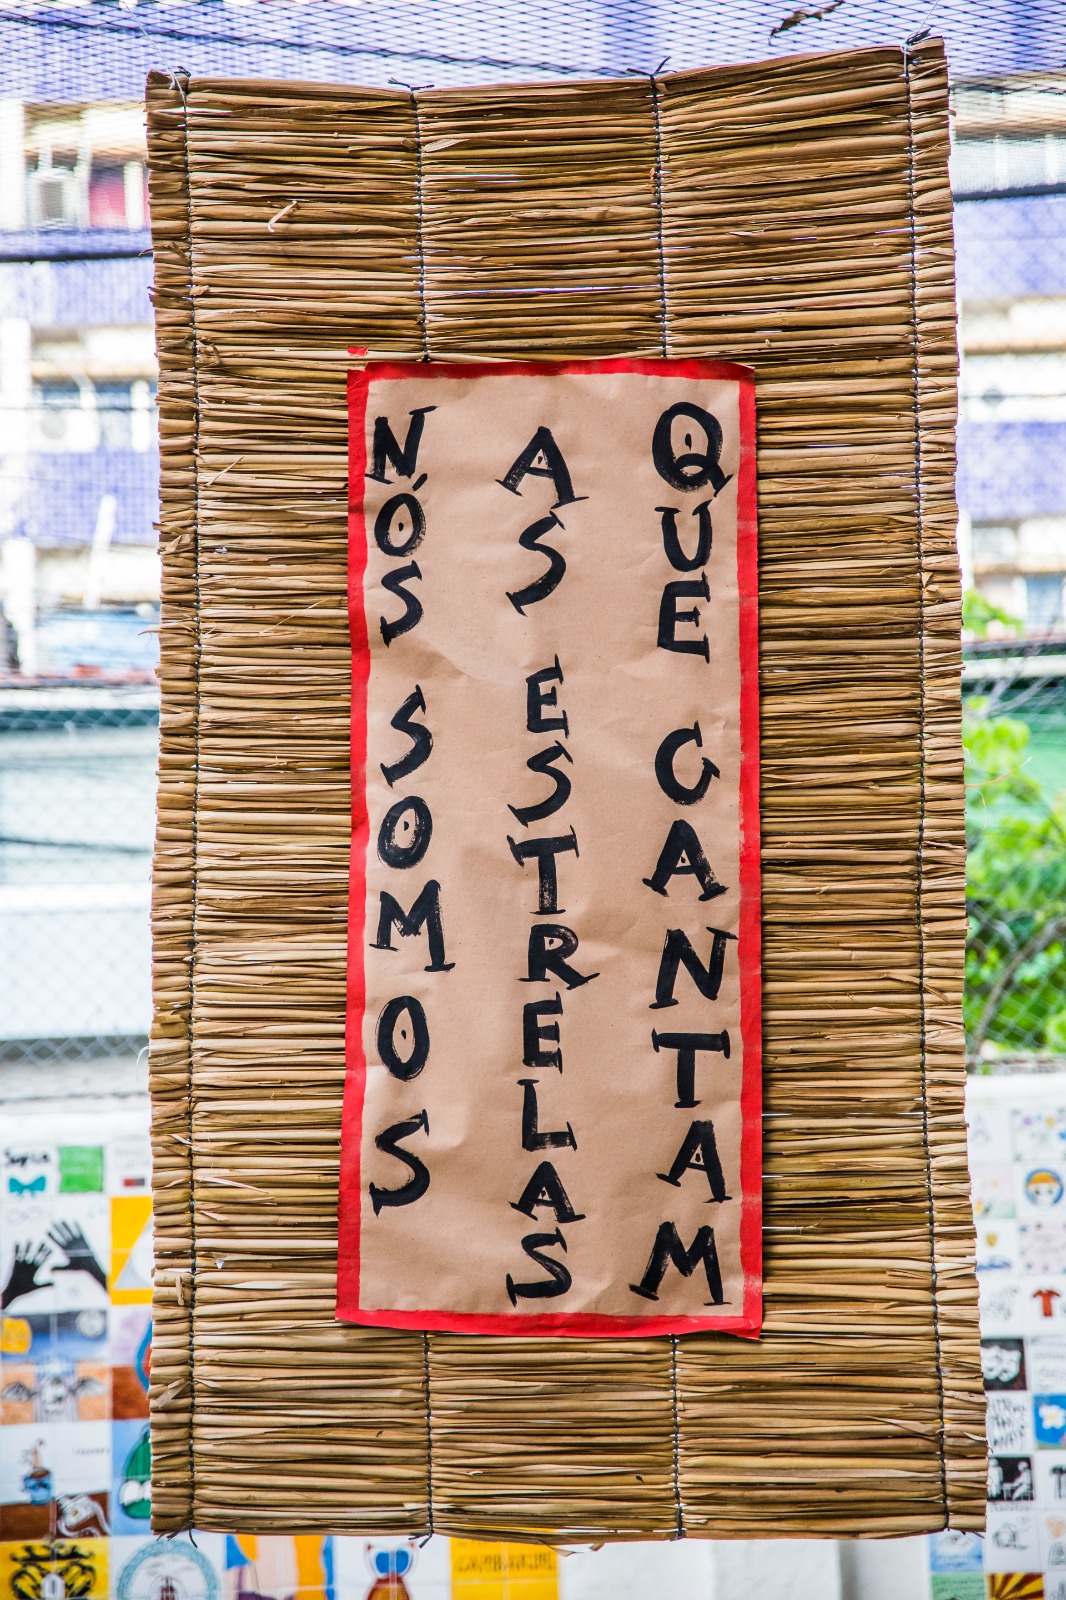 NÓS SOMOS
AS ESTRELAS
QUE CANTAM